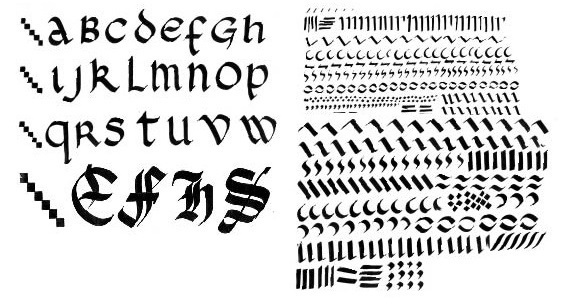 aBcdefGh
ıjkLmnop
qRstuvw
EFHS